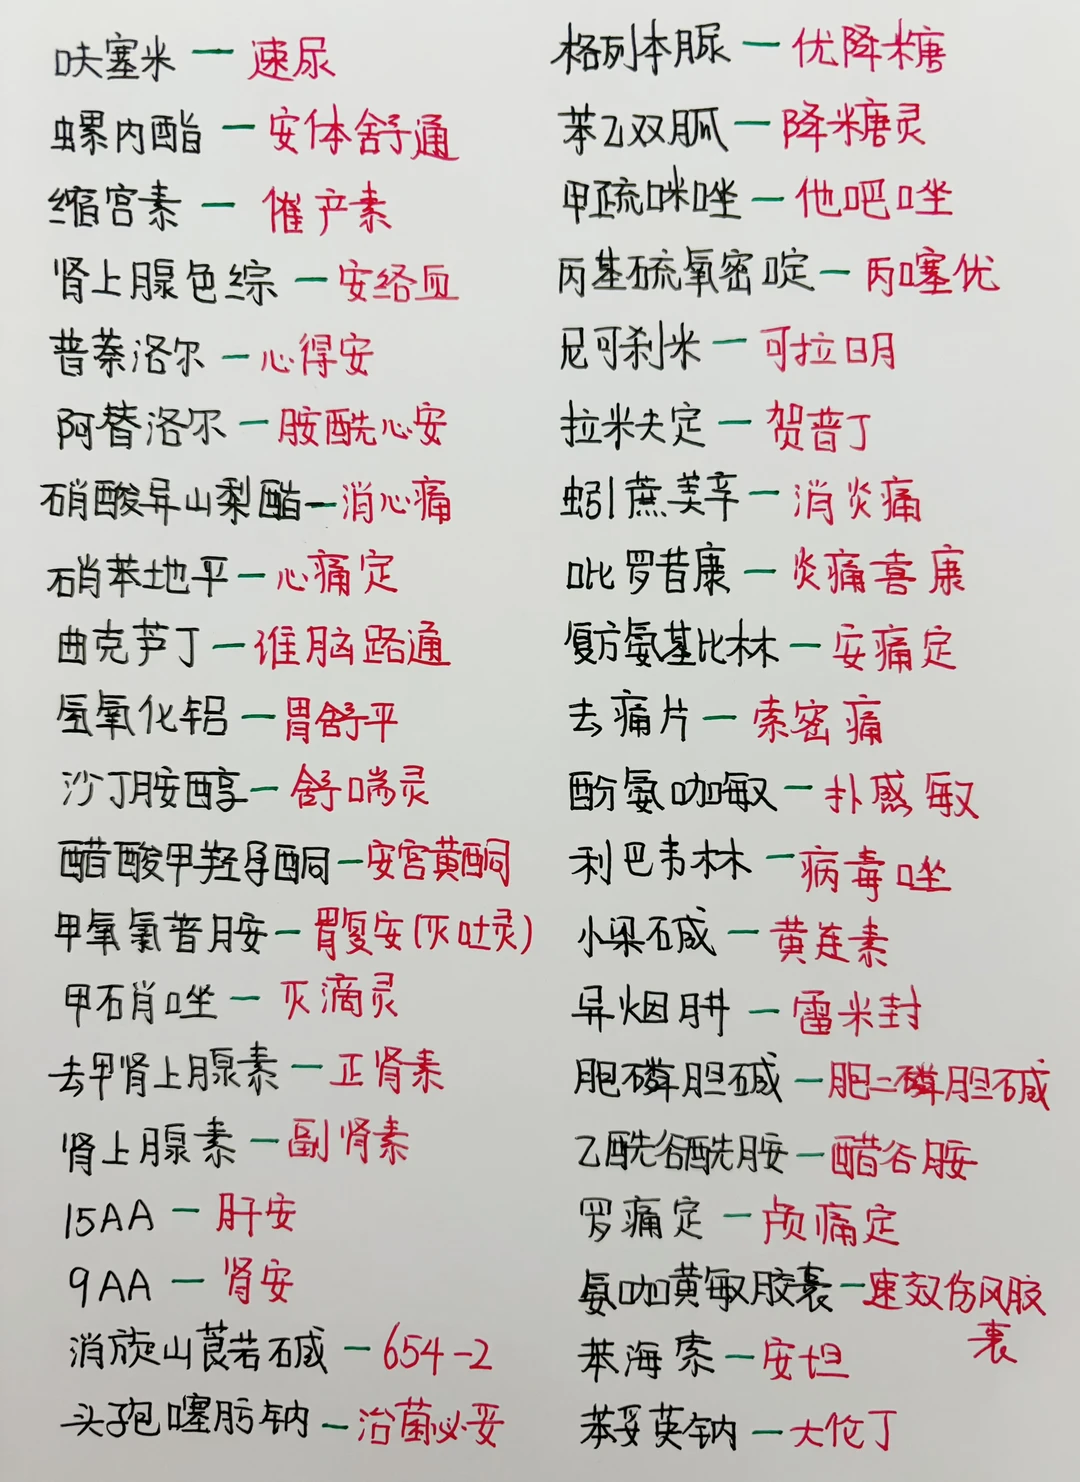 呋塞米 — 速尿
螺内酯 — 安体舒通
缩宫素 — 催产素
肾上腺色综 — 安络血
普萘洛尔 — 心得安
阿替洛尔 — 胺酰心安
硝酸异山梨酯 — 消心痛
硝苯地平 — 心痛定
曲克芦丁 — 维脑路通
氢氧化铝 — 胃舒平
沙丁胺醇 — 舒喘灵
醋酸甲羟孕酮 — 安宫黄酮
甲氧氯普胺 — 胃复安(灭吐灵)
甲硝唑 — 灭滴灵
去甲肾上腺素 — 正肾素
肾上腺素 — 副肾素
15AA — 肝安
9AA — 肾安
消旋山莨若碱 — 654-2
头孢噻肟钠 — 治菌必妥
格列本脲 — 优降糖
苯乙双胍 — 降糖灵
甲巯咪唑 — 他吧唑
丙基硫氧密啶 — 丙噻优
尼可刹米 — 可拉明
拉米夫定 — 贺普丁
吲蔗美辛 — 消炎痛
吡罗昔康 — 炎痛喜康
复方氨基比林 — 安痛定
去痛片 — 索密痛
酚氨咖敏 — 扑感敏
利巴韦林 — 病毒唑
小梁碱 — 黄连素
异烟肼 — 雷米封
胞磷胆碱 — 胞二磷胆碱
乙酰谷酰胺 — 醋谷胺
罗痛定 — 颅痛定
氨咖黄敏胶囊 — 速效伤风胶
囊
苯海索 — 安坦
苯妥英钠 — 大伦丁